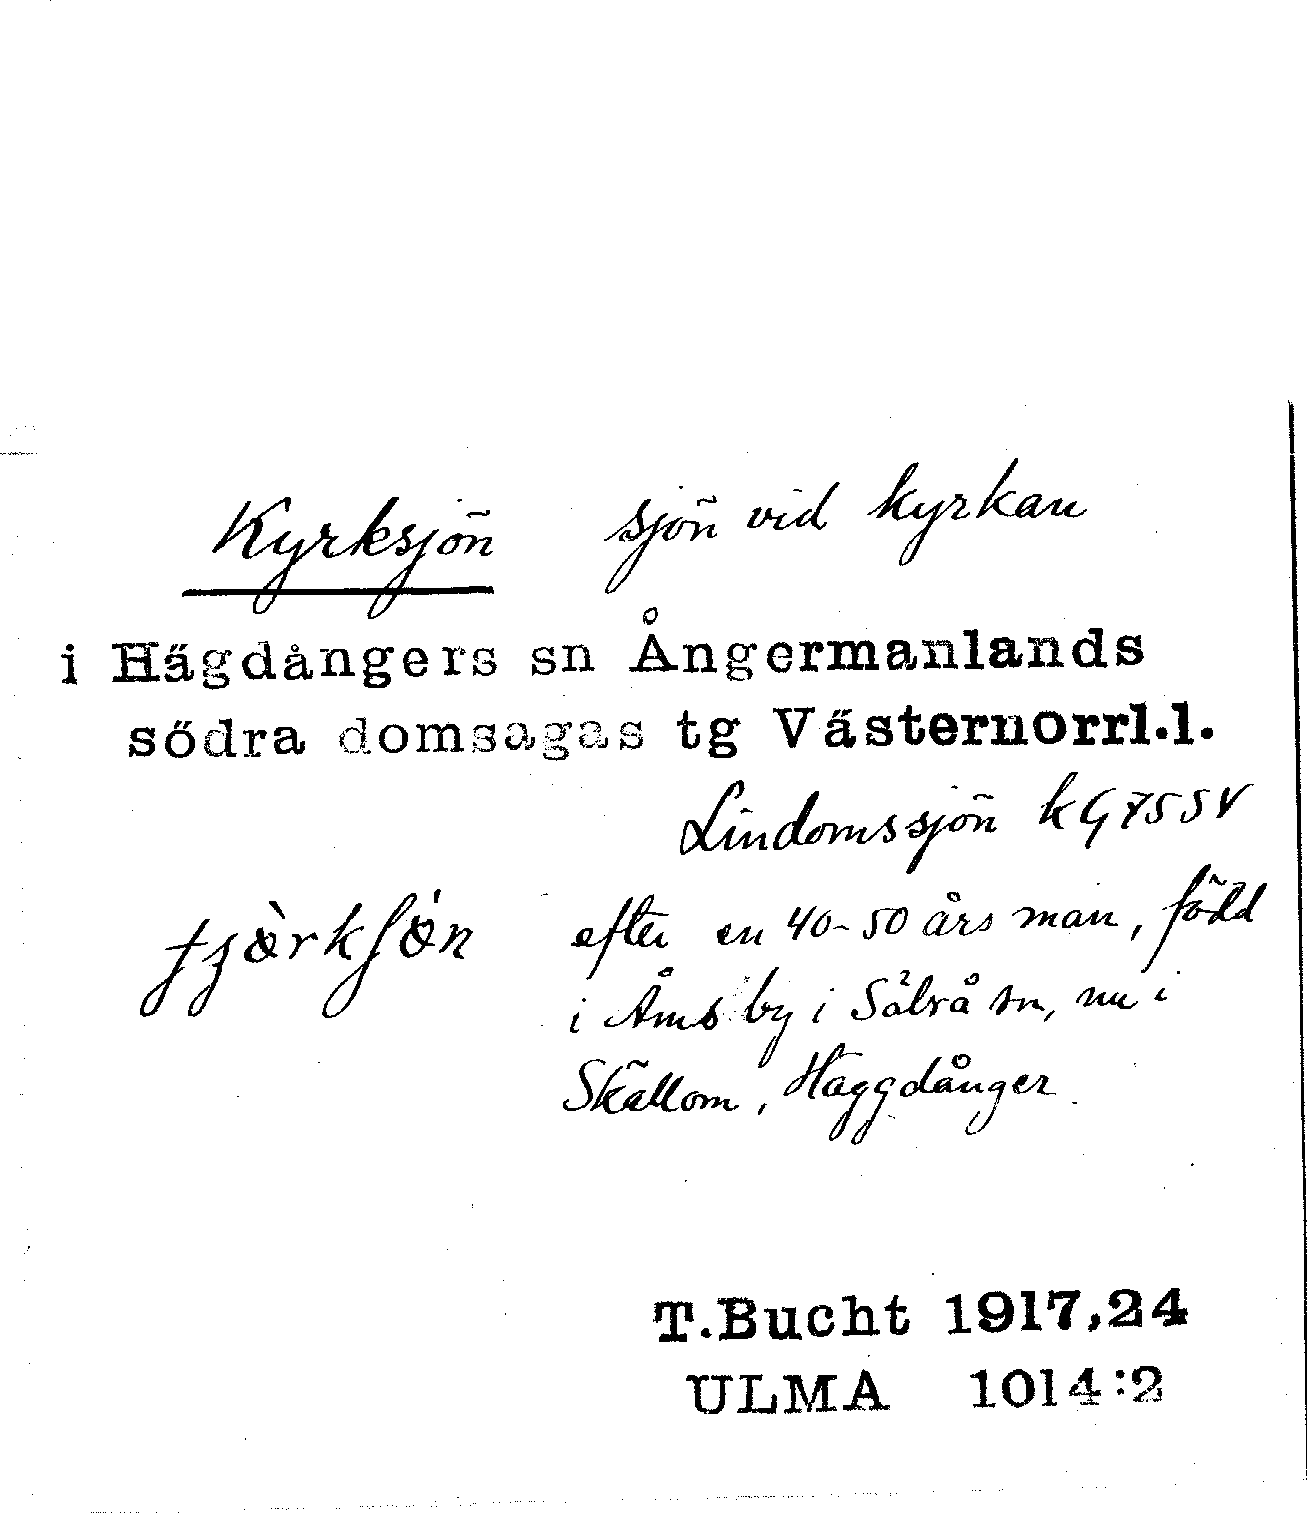 Kyrksjön sjön vid kyrkan
i Hägdångers sn Ångermanlands
södra domsagas tg Västernorrl.l.
Lindomssjön kG755V
efter en 40-50 års man, född
i Åms by i Säbrå sn, nu i
Skällom, Häggdånger.
T.Bucht 1917,24
ULMA 1014:2